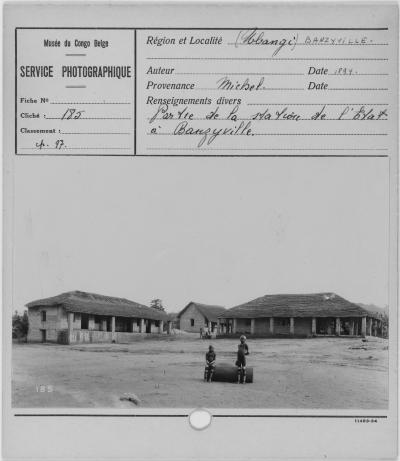 Musée du Congo Belge
SERVICE PHOTOGRAPHIQUE
Fiche No
Cliché : 185
Classement :
cp. 97.
Région et Localité (Ubangi) BANZYVILLE.
Auteur Date 1894.
Provenance Michel. Date
Renseignements divers
Partie de la station de l'Etat
à Banzyville.
185